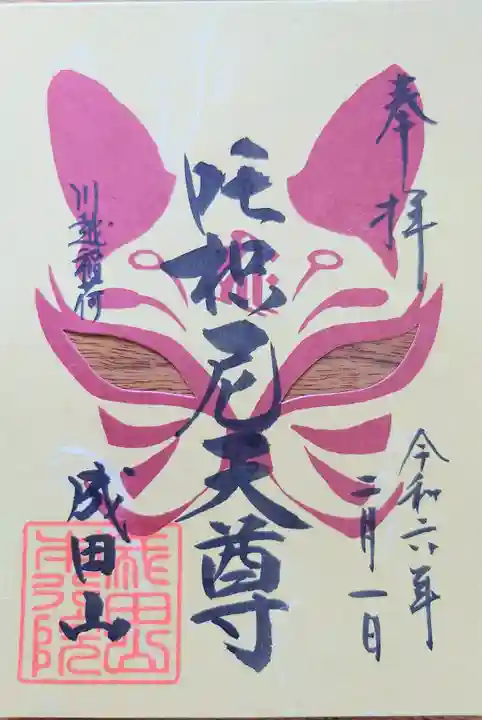 奉拝
令和六年
二月一日
吒枳尼天尊
川越稲荷
成田山